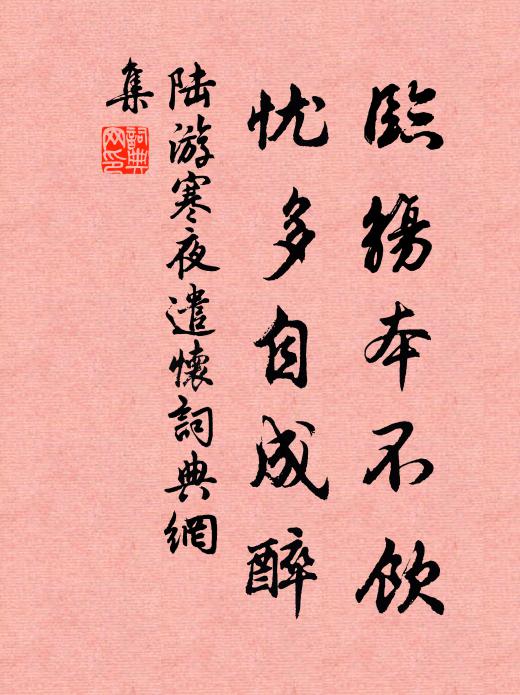 臨觴本不飲
忧多自成醉
陆游寒夜遣懷詞典網
集
詞典網印